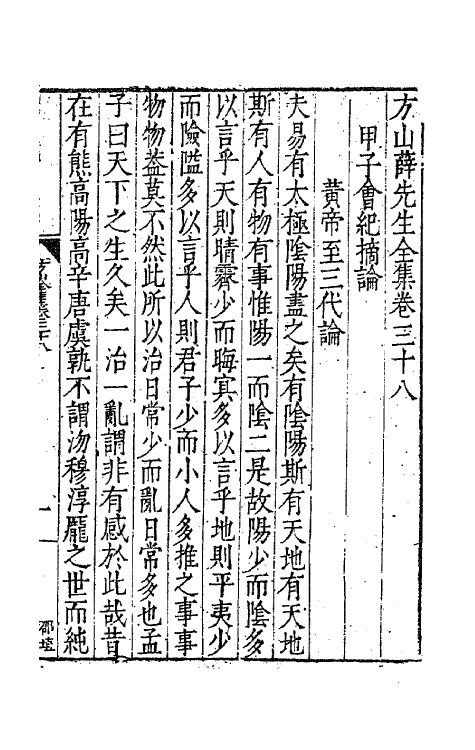 方山薛先生全集卷三十八
甲子會紀摘論
黄帝至三代論
夫易有太極陰陽盡之矣有陰陽斯有天地有天地
斯有人有物有事惟陽一而陰二是故陽少而陰多
以言乎天則晴霽少而晦㝠多以言乎地則平夷少
而險隘多以言乎人則君子少而小人多推之事事
物物蓋莫不然此所以治日常少而亂日常多也孟
子曰天下之生久矣一治一亂謂非有感於此哉昔
在有熊高陽高辛唐虞孰不謂沕穆淳龐之世而純